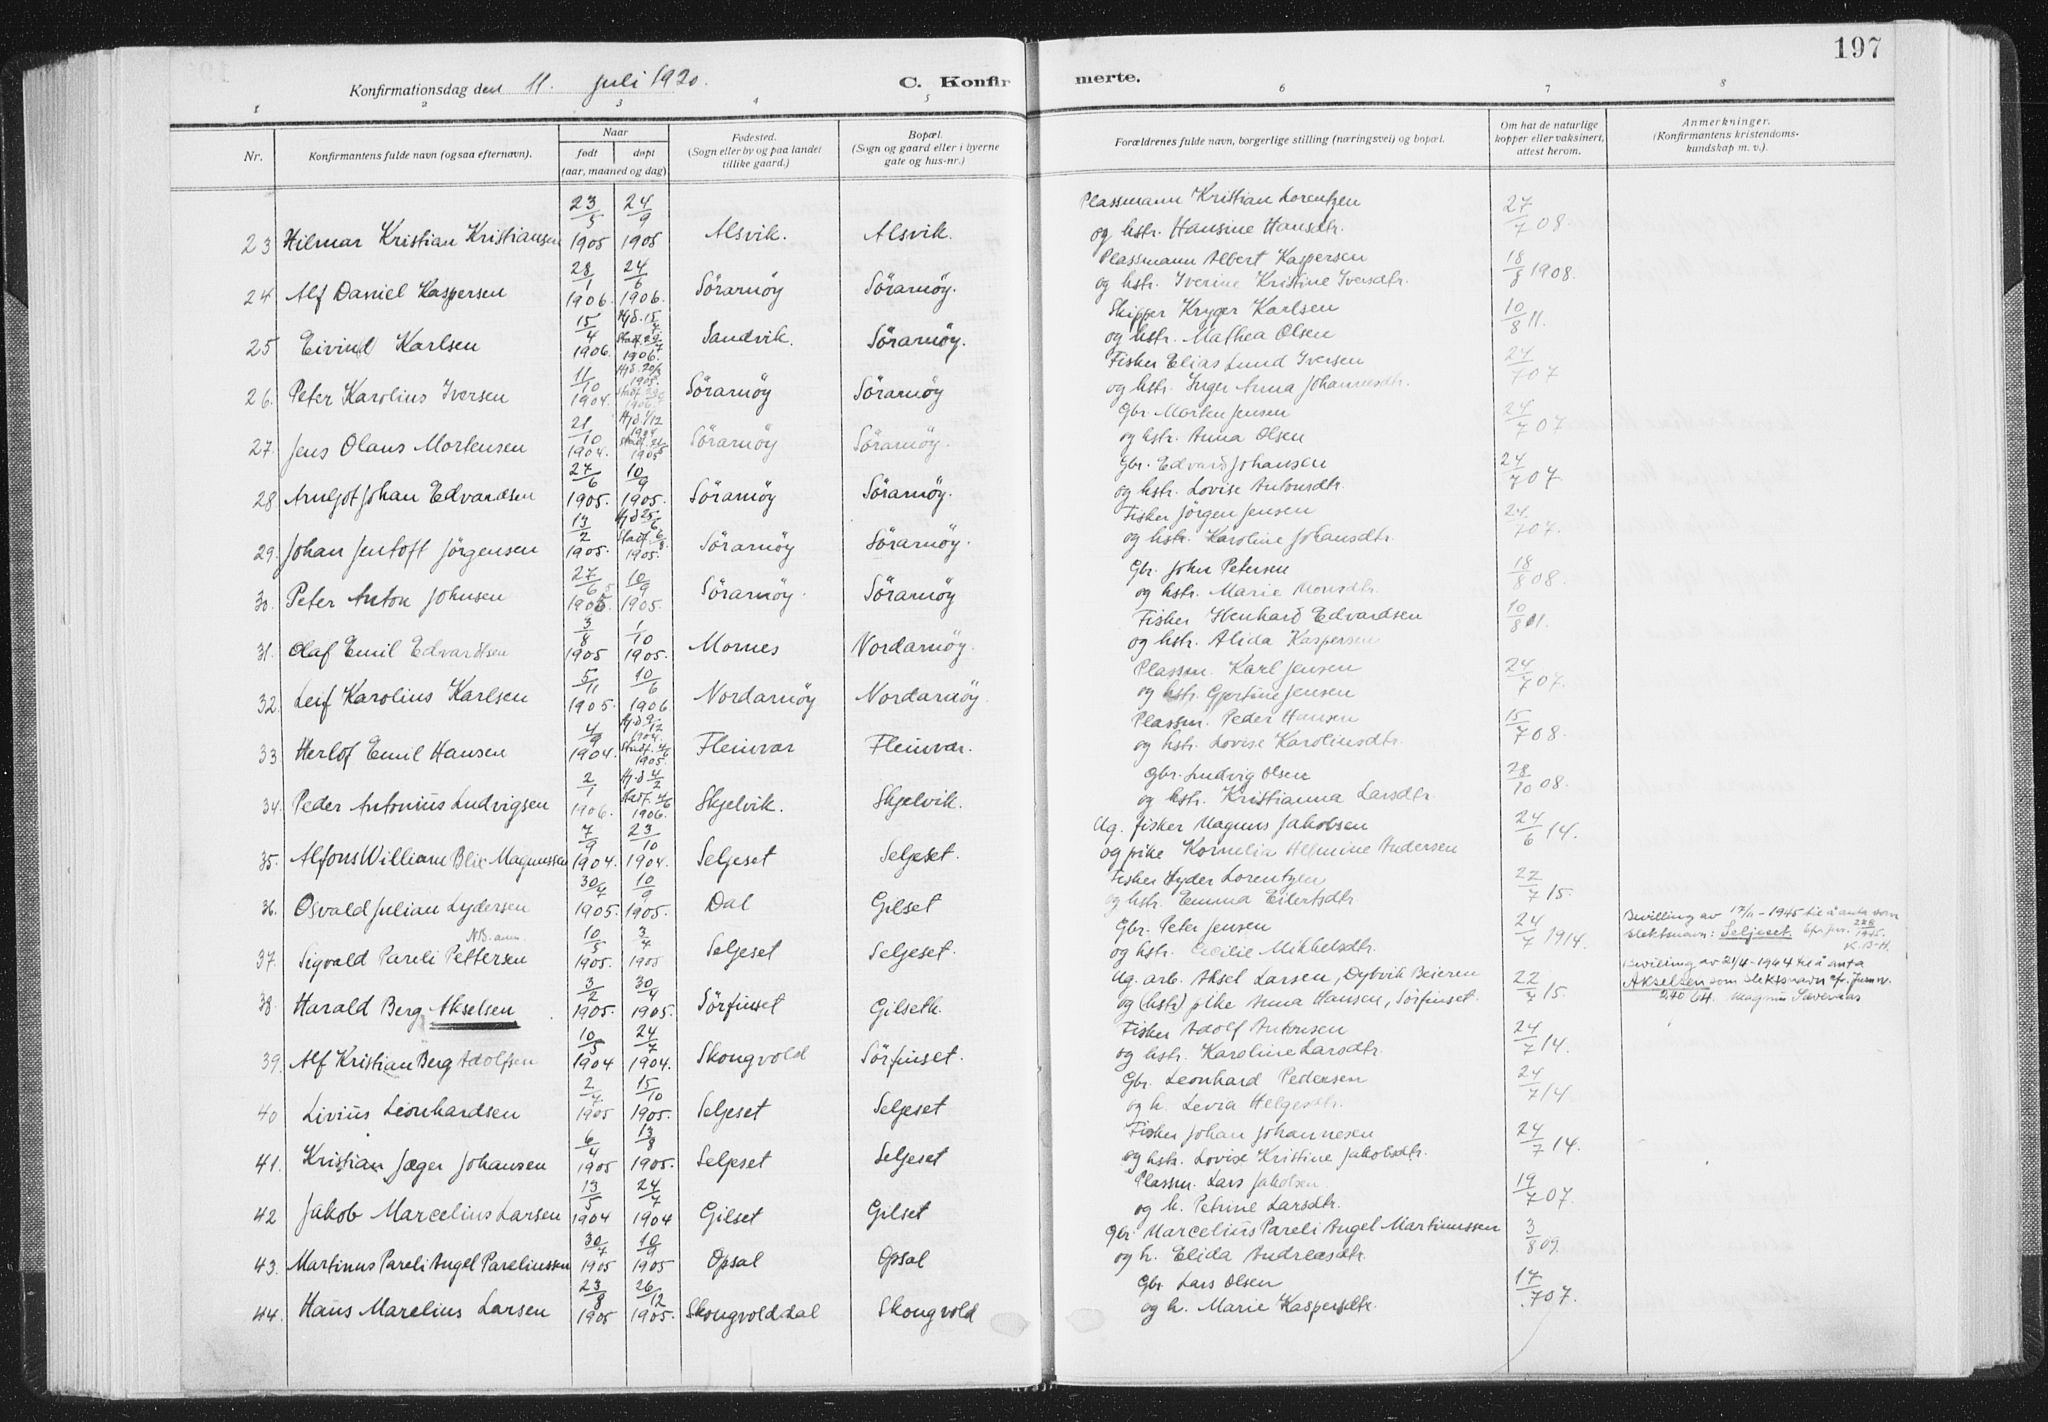 197
Konfirmationsdag den 11. juli 1920.
C. Konfirmerte.
1 2 3 4 5 6 7 8
Nr. Konfirmantens fulde navn (ogsaa efternavn). Naar født døpt (aar, maaned og dag) Fødested. (Sogn eller by og paa landet tillike gaard.) Bopæl. (Sogn og gaard eller i byerne gate og hus-nr.) Forældrenes fulde navn, borgerlige stilling (næringsvei) og bopæl. Om hat de naturlige kopper eller vaksinert, attest herom. Anmerkninger. (Konfirmantens kristendoms-kundskap m. v.).
23 Hilmar Kristian Kristiansen 23/5 1905 24/9 1905 Alsvik. Alsvik. Plassmann Kristian Lorentzen
og hstr. Hansine Hansdtr. 27/7 08.
24 Alf Daniel Kaspersen 28/1 1906. 24/6 1906. Sörarnöy Sörarnöy. Plassmann Albert Kaspersen
og hstr. Iverine Kristine Iversdtr. 18/8 1908.
25 Eivind Karlsen 15/4 1906. Hjd. 15/4 Stadf. 29/7 1906. Sandvik. Sörarnöy. Skipper Kryger Karlsen
og hstr. Mathea Olsen 10/8 11.
26. Peter Karolius Iversen 11/10 1904. Sörarnöy Sörarnöy Fisker Elias Lund Iversen
og hstr. Inger Anna Johannesdtr. 24/7 07
27. Jens Olaus Mortensen 21/10 1904. Hjd. 1/12 1904 Stadf. 21/5 1905 Sörarnöy Sörarnöy. Gbr. Morten Jensen
og hstr. Anna Olsen 24/7 07
28 Arnljot Johan Edvardsen 27/6 1905. 10/9 1905. Sörarnöy Sörarnöy. Gbr. Edvard Johansen
og hstr. Lovise Antonsdtr. 24/7 07.
29. Johan Jentoft Jörgensen 13/2 1905. Hjd 25/6 Stadf. 6/8 1905. Sörarnöy Sörarnöy. Fisker Jörgen Jensen
og hstr. Karoline Johansdtr. 24/7 07.
30 Peter Anton Johnsen 27/6 1905 10/9 1905. Sörarnöy. Sörarnöy Gbr. John Petersen
og hstr. Marie Monsdtr. 18/8 08.
31. Olaf Emil Edvardsen 3/8 1905 1/10 1905. Mornes Nordarnöy. Fisker Henhard Edvardsen
og hstr. Alida Kaspersen 10/8 11.
32. Leif Karolius Karlsen 5/11 1905. 10/6 1906 Nordarnöy Nordarnöy. Plassm. Karl Jensen
og hstr. Gjertine Jensen 24/7 07.
33 Herlof Emil Hansen 4/9 1904. Hjd 9/12 1904. Stadf. 4/6 1905. Fleinvær Fleinvær. Plassm. Peder Hansen
og hstr. Lovise Karoliusdtr. 15/7 08.
34. Peder Antonius Ludvigsen 2/1 1906. Hj.d 4/2 Stadf. 4/6 1906. Skjelvik. Skjelvik. Gbr. Ludvig Olsen
og hstr. Kristianna Larsdtr. 28/10 08.
35. Alfons William Blix Magnussen 7/9 1904. 23/10 1904. Seljeset Seljeset. Ug. fisker Magnus Jakobsen
og pike Kornelia Helmine Andersen 24/6 14.
36. Osvald Julian Lydersen 30/4 1905. 10/9 1905. Dal Gilset Fisker Lyder Lorentzen
og hstr. Emma Eilertsdtr. 22/7 15.
N.B. anm.
37. Sigvald Pareli Pettersen 10/5 1905. 3/4 1905 Seljeset Seljeset. Gbr. Peter Jensen
og hstr. Cecilie Mikkelsdtr. 24/7 1914. Bevilling av 17/11-1945 til å anta som
slektsnavn: Seljeset. Cfr. jnr. 228/1945.
K. B-H.
38. Harald Berg Akselsen 3/2 1905. 30/4 1905. Sörfinset Gilseth. Ug. arb. Aksel Larsen, Dybvik Beieren
og (hstr) pike Anna Hansen, Sörfinset. 22/7 15. Bevilling av 21/4-1964 til å anta
Akselsen som slektsnavn cfr. Journr.
240/64. Magnus
39. Alf Kristian Berg Adolfsen 10/5 1904 24/7 1904. Skongvold Sörfinset. Fisker Adolf Antonsen
og hstr. Karoline Larsdtr. 24/7 14.
40 Livius Leonhardsen 2/7 1905 15/10 1905. Seljeset Seljeset Gbr. Leonhard Pedersen
og h. Levia Helgesdtr. 24/7 14
41. Kristian Jæger Johansen 6/4 1905 13/8 1905. Seljeset Seljeset Fisker Johan Johannesen
og hstr. Lovise Kristine Jakobsdtr. 24/7 14.
42 Jakob Marcelius Larsen 13/5 1904 24/7 1904 Gilset Gilset Plassm. Lars Jakobsen
og h. Petrine Larsdtr. 19/7 07.
43. Martinus Pareli Angel Pareliussen 30/7 1905 10/9 1905 Opsal Opsal Gbr. Marcelius Pareli Angel Martinussen
og h. Elida Andreasdtr. 3/8 09.
44. Hans Marelius Larsen 23/8 1905 26/12 1905. Skongvolddal Skongvold Gbr Lars Olsen
og h. Marie Kaspersdtr. 17/7 07.